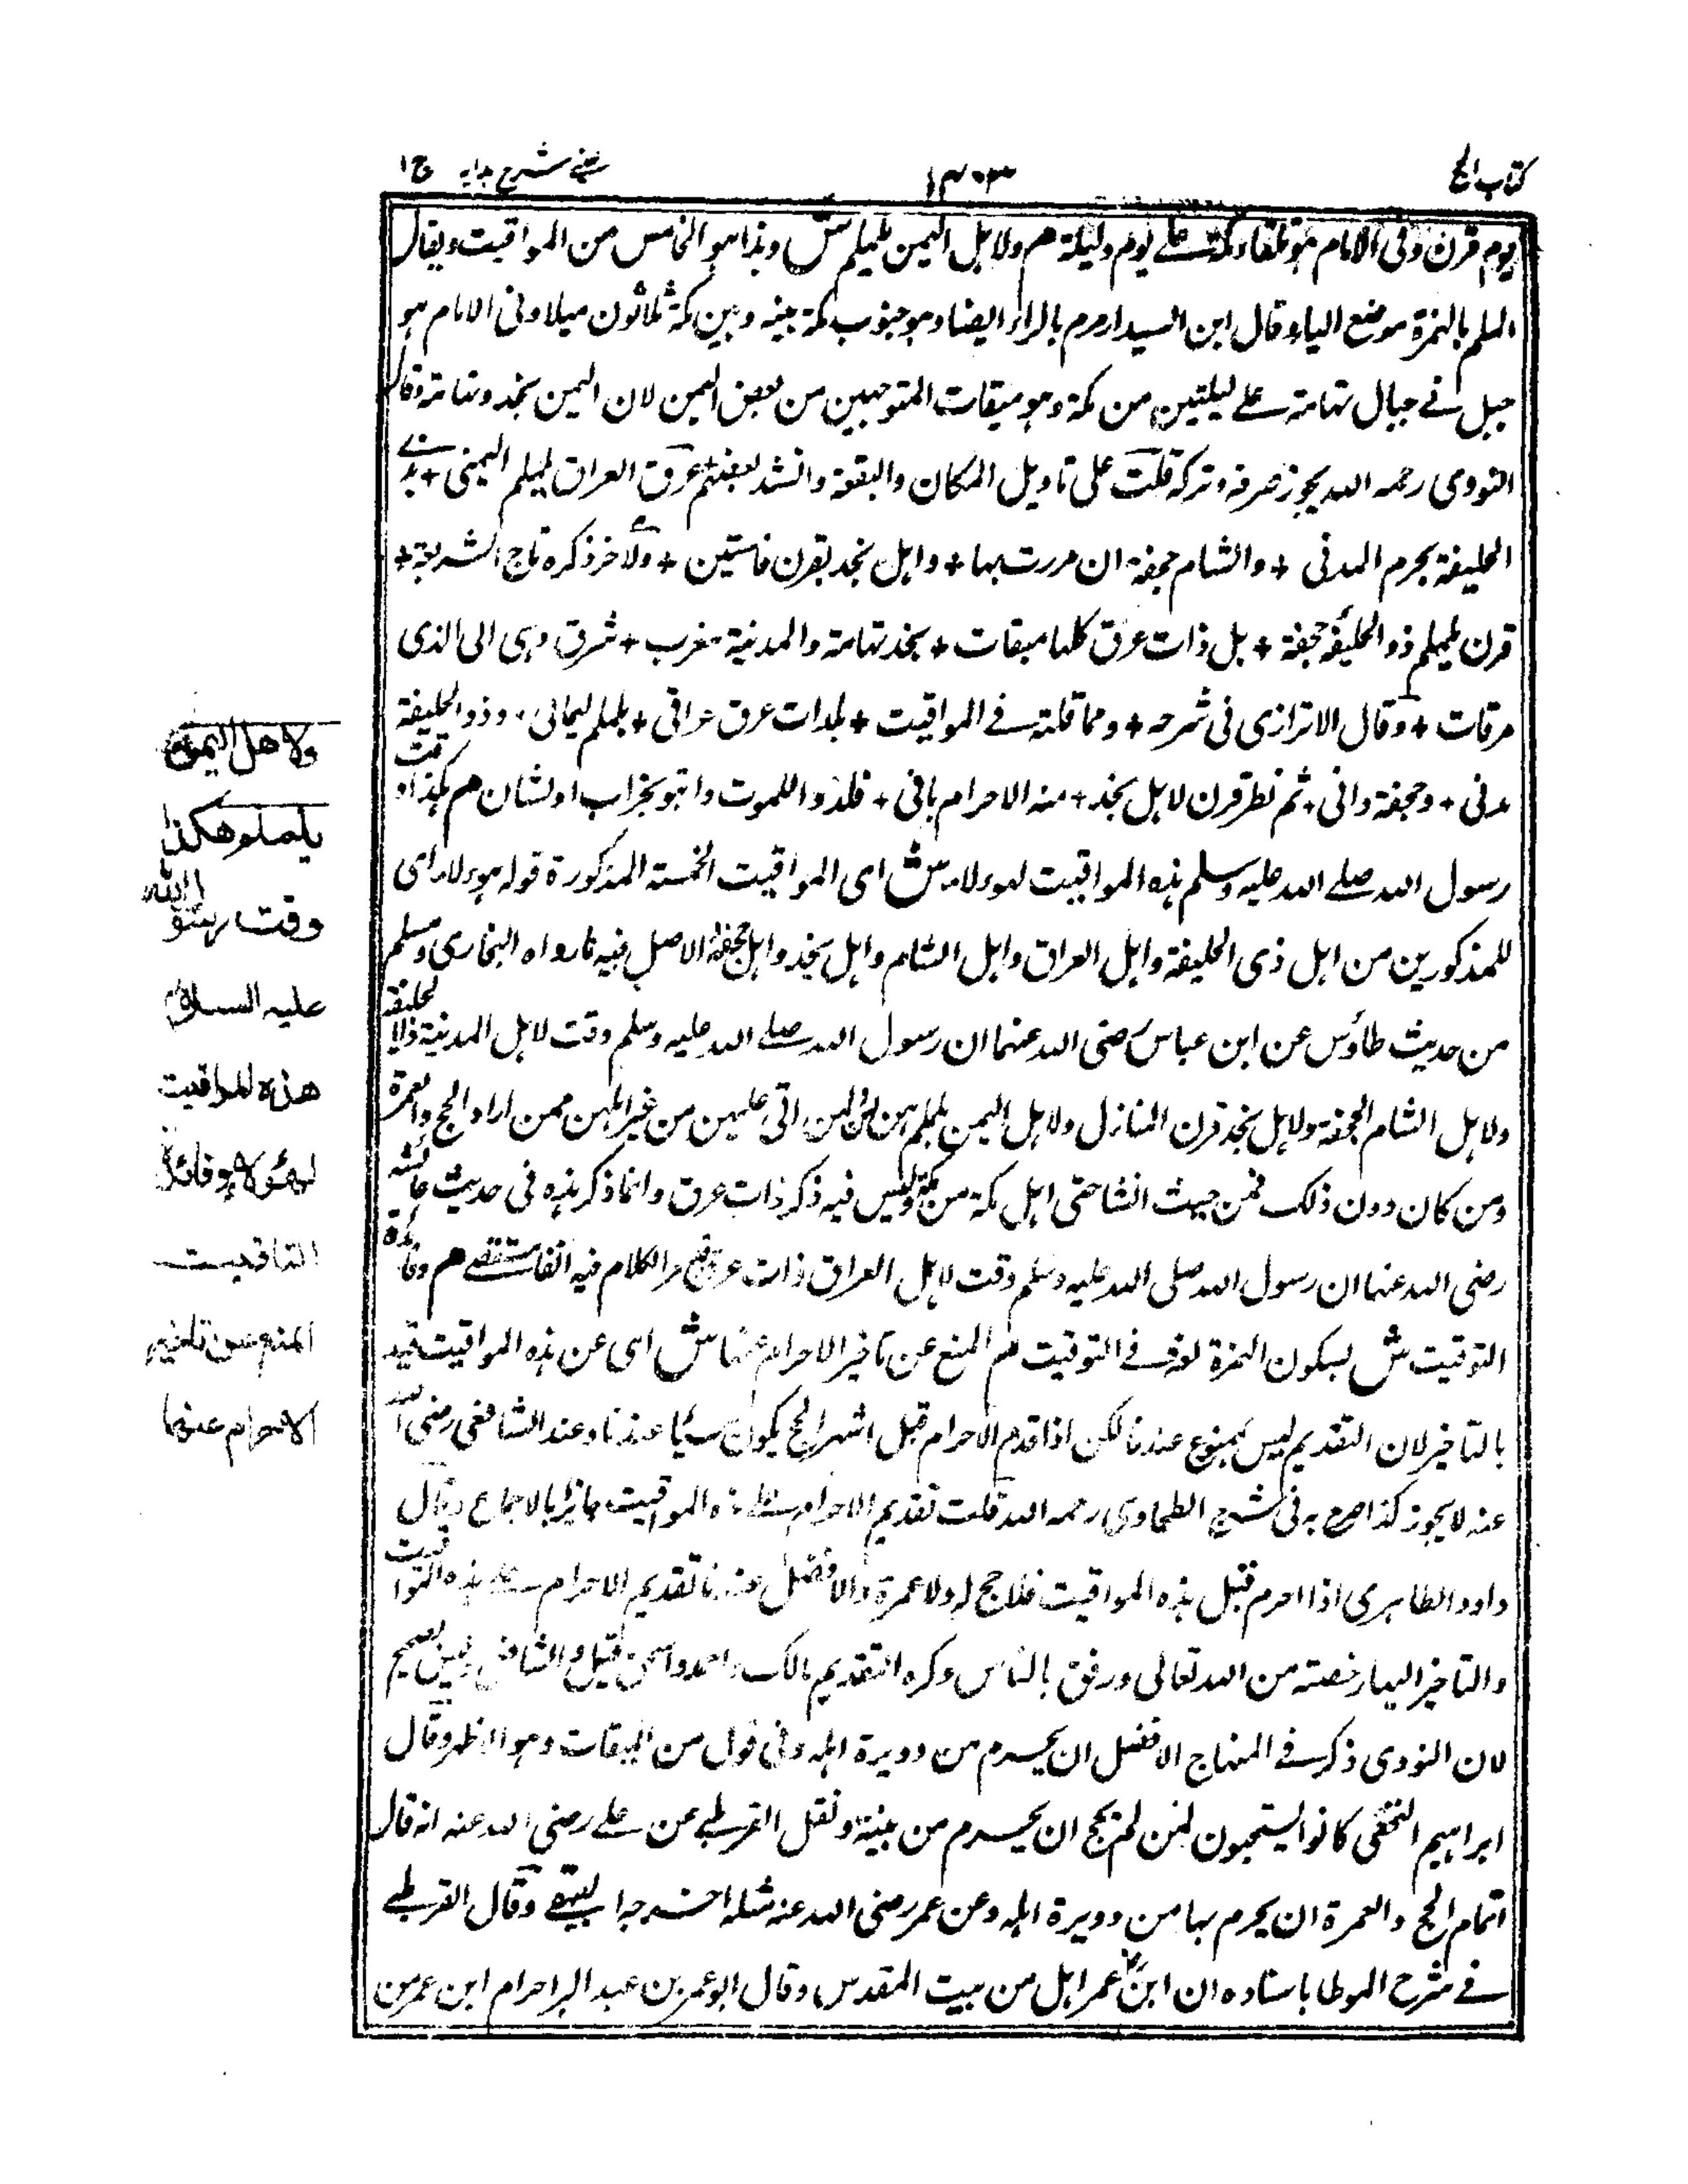 كتاب الحج
١٤٠٣
عيني شرح هدايه ج ١
يوم قرن وفى الامام هو تلقاء مكة على يوم وليلة هم ولاهل اليمن يلملم ش وهذا هو الخامس من المواقيت ويقال
الملم بالهمزة موضع الياء وقال ابن السيد ارمرم بالراء ايضا وهو جنوب مكة بينه وبين مكة ثلاثون ميلا وفى الامام هو
جبل فے جبال تهامة على ليلتين من مكة وهو ميقات المتوجهين من بعض اليمن لان اليمن نجد وتهامة وقال
النووى رحمه الله يجوز صرفه وتركه قلت على تاويل المكان والبقعة وانشد بعضهم عرق العراق يلملم اليمنى + بذى
الحليفة يحرم المدنى + والشام جحفة ان مررت بها + واهل نجد بقرن فاستبن + ولاخر ذكره تاج الشريعة +
قرن يلملم ذو الحليفة جحفة + بل ذات عرق كلها ميقات + نجد تهامة والمدينة مغرب + شرق وهى الى الذى
مرقات + وقال الاترازى فى شرحه + ومما قلته فے المواقيت + بلدات عرق عراقى + يلملم ليمانى + وذو الحليفة
مدنى + وجحفة دانى + ثم نظر قرن لاهل نجد + منه الاحرام باقى + فلدوا للموت وابنو لخراب اولشان هم هكذا وقت
رسول الله صلے الله عليه وسلم هذه المواقيت لهولاء ش اى المواقيت الخمسة المذكورة قوله هولاء اى
للمذكورين من اهل ذى الحليفة واهل العراق واهل الشام واهل نجد واهل جحفة الاصل فيه مارواه البخارى ومسلم
من حديث طاؤس عن ابن عباس رضى الله عنهما ان رسول الله صلے الله عليه وسلم وقت لاهل المدينة ذا الحليفة
ولاهل الشام الجحفة ولاهل نجد قرن المنازل ولاهل اليمن يلملم هن لهن ولمن اتى عليهن من غير اهلهن ممن اراد الحج والعمرة
ومن كان دون ذلك فمن حيث انشا حتى اهل مكة من مكة وليس فيه ذكر ذات عرق وانما ذكر هذه فى حديث عائشة
رضى الله عنها ان رسول الله صلى الله عليه وسلم وقت لاهل العراق ذات عرق وقد مر الكلام فيه انفا مستقصے هم وفائدة
التوقيت ش بسكون الهمزة لغة فے التوقيت هم المنع عن تاخير الاحرام عنها ش اى عن هذه المواقيت قيد
بالتاخير لان التقديم ليس بممنوع عندنا لكن اذا قدم الاحرام قبل اشهر الحج يكون سيئا عندنا وعند الشافعى رضى الله
عنه لا يجوز كذا صرح به فى شرح الطحاوى رحمه الله قلت تقديم الاحرام على هذه المواقيت جائز بالاجماع وقال
داود الظاهرى اذا احرم قبل هذه المواقيت فلا حج له ولا عمرة والافضل عندنا تقديم الاحرام على هذه المواقيت
والتاخير اليها رخصة من الله تعالى ورفق بالناس وكره التقديم مالك واحمد واسحق قيل والشافعى وليس بصحيح
لان النووى ذكر فے المنهاج الافضل ان يحرم من دويرة اهله وفى قول من الميقات وهو الاظهر وقال
ابراهيم النخعى كانوا يستحبون لمن لم يحج ان يحرم من بيته ونقل القرطبے عن على رضى الله عنه انه قال
اتمام الحج والعمرة ان يحرم بها من دويرة اهله وعن عمر رضى الله عنه مثله اخرجه البيهقے وقال القرطبے
فے شرح الموطا باسناده ان ابن عمر اهل من بيت المقدس وقال ابو عمر بن عبد البر احرام ابن عمر من
ولاهل اليمن
يلملم هكذا
وقت رسول الله
عليه السلام
هذه المواقيت
لهؤلاء وفائدة
التاقيت
المنع عن تاخير
الاحرام عنها